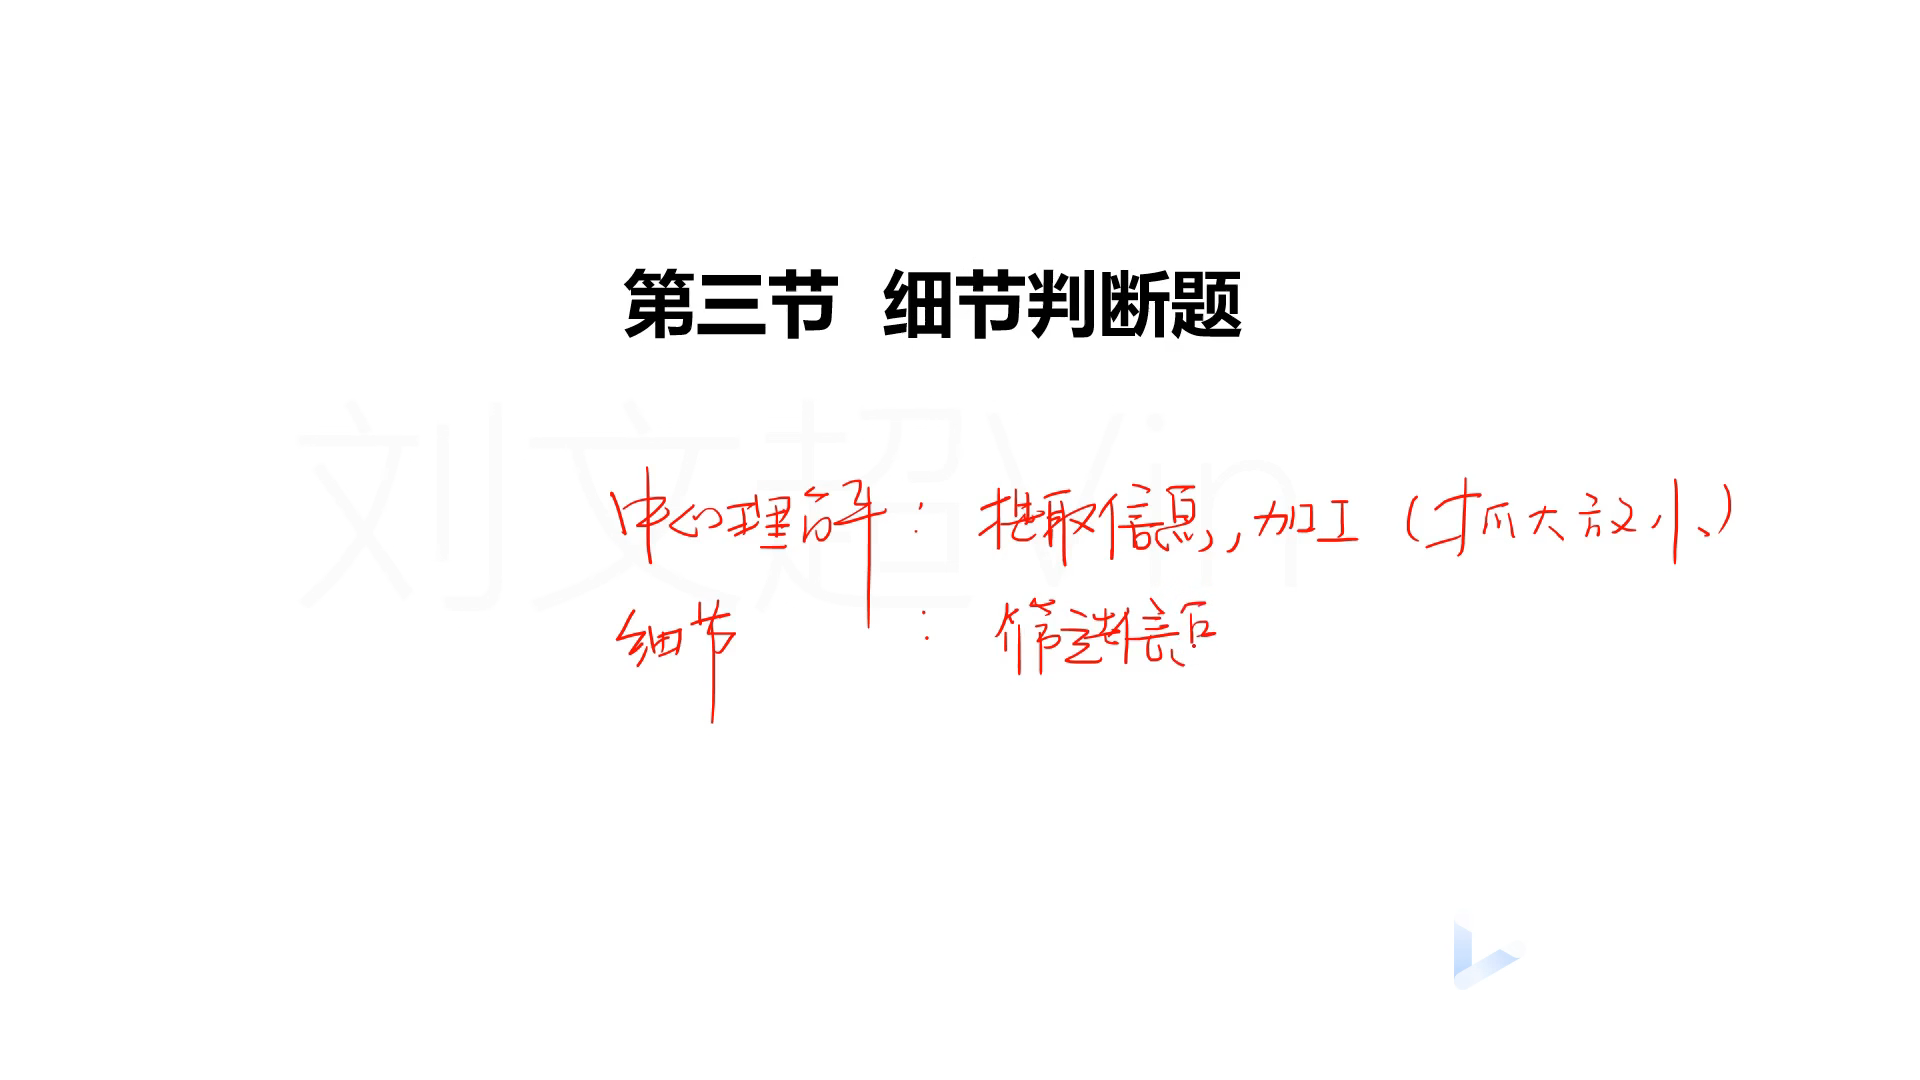 第三节 细节判断题
刘文超Vin
中心理解：提取信息，加工（抓大放小）
细节：筛选信